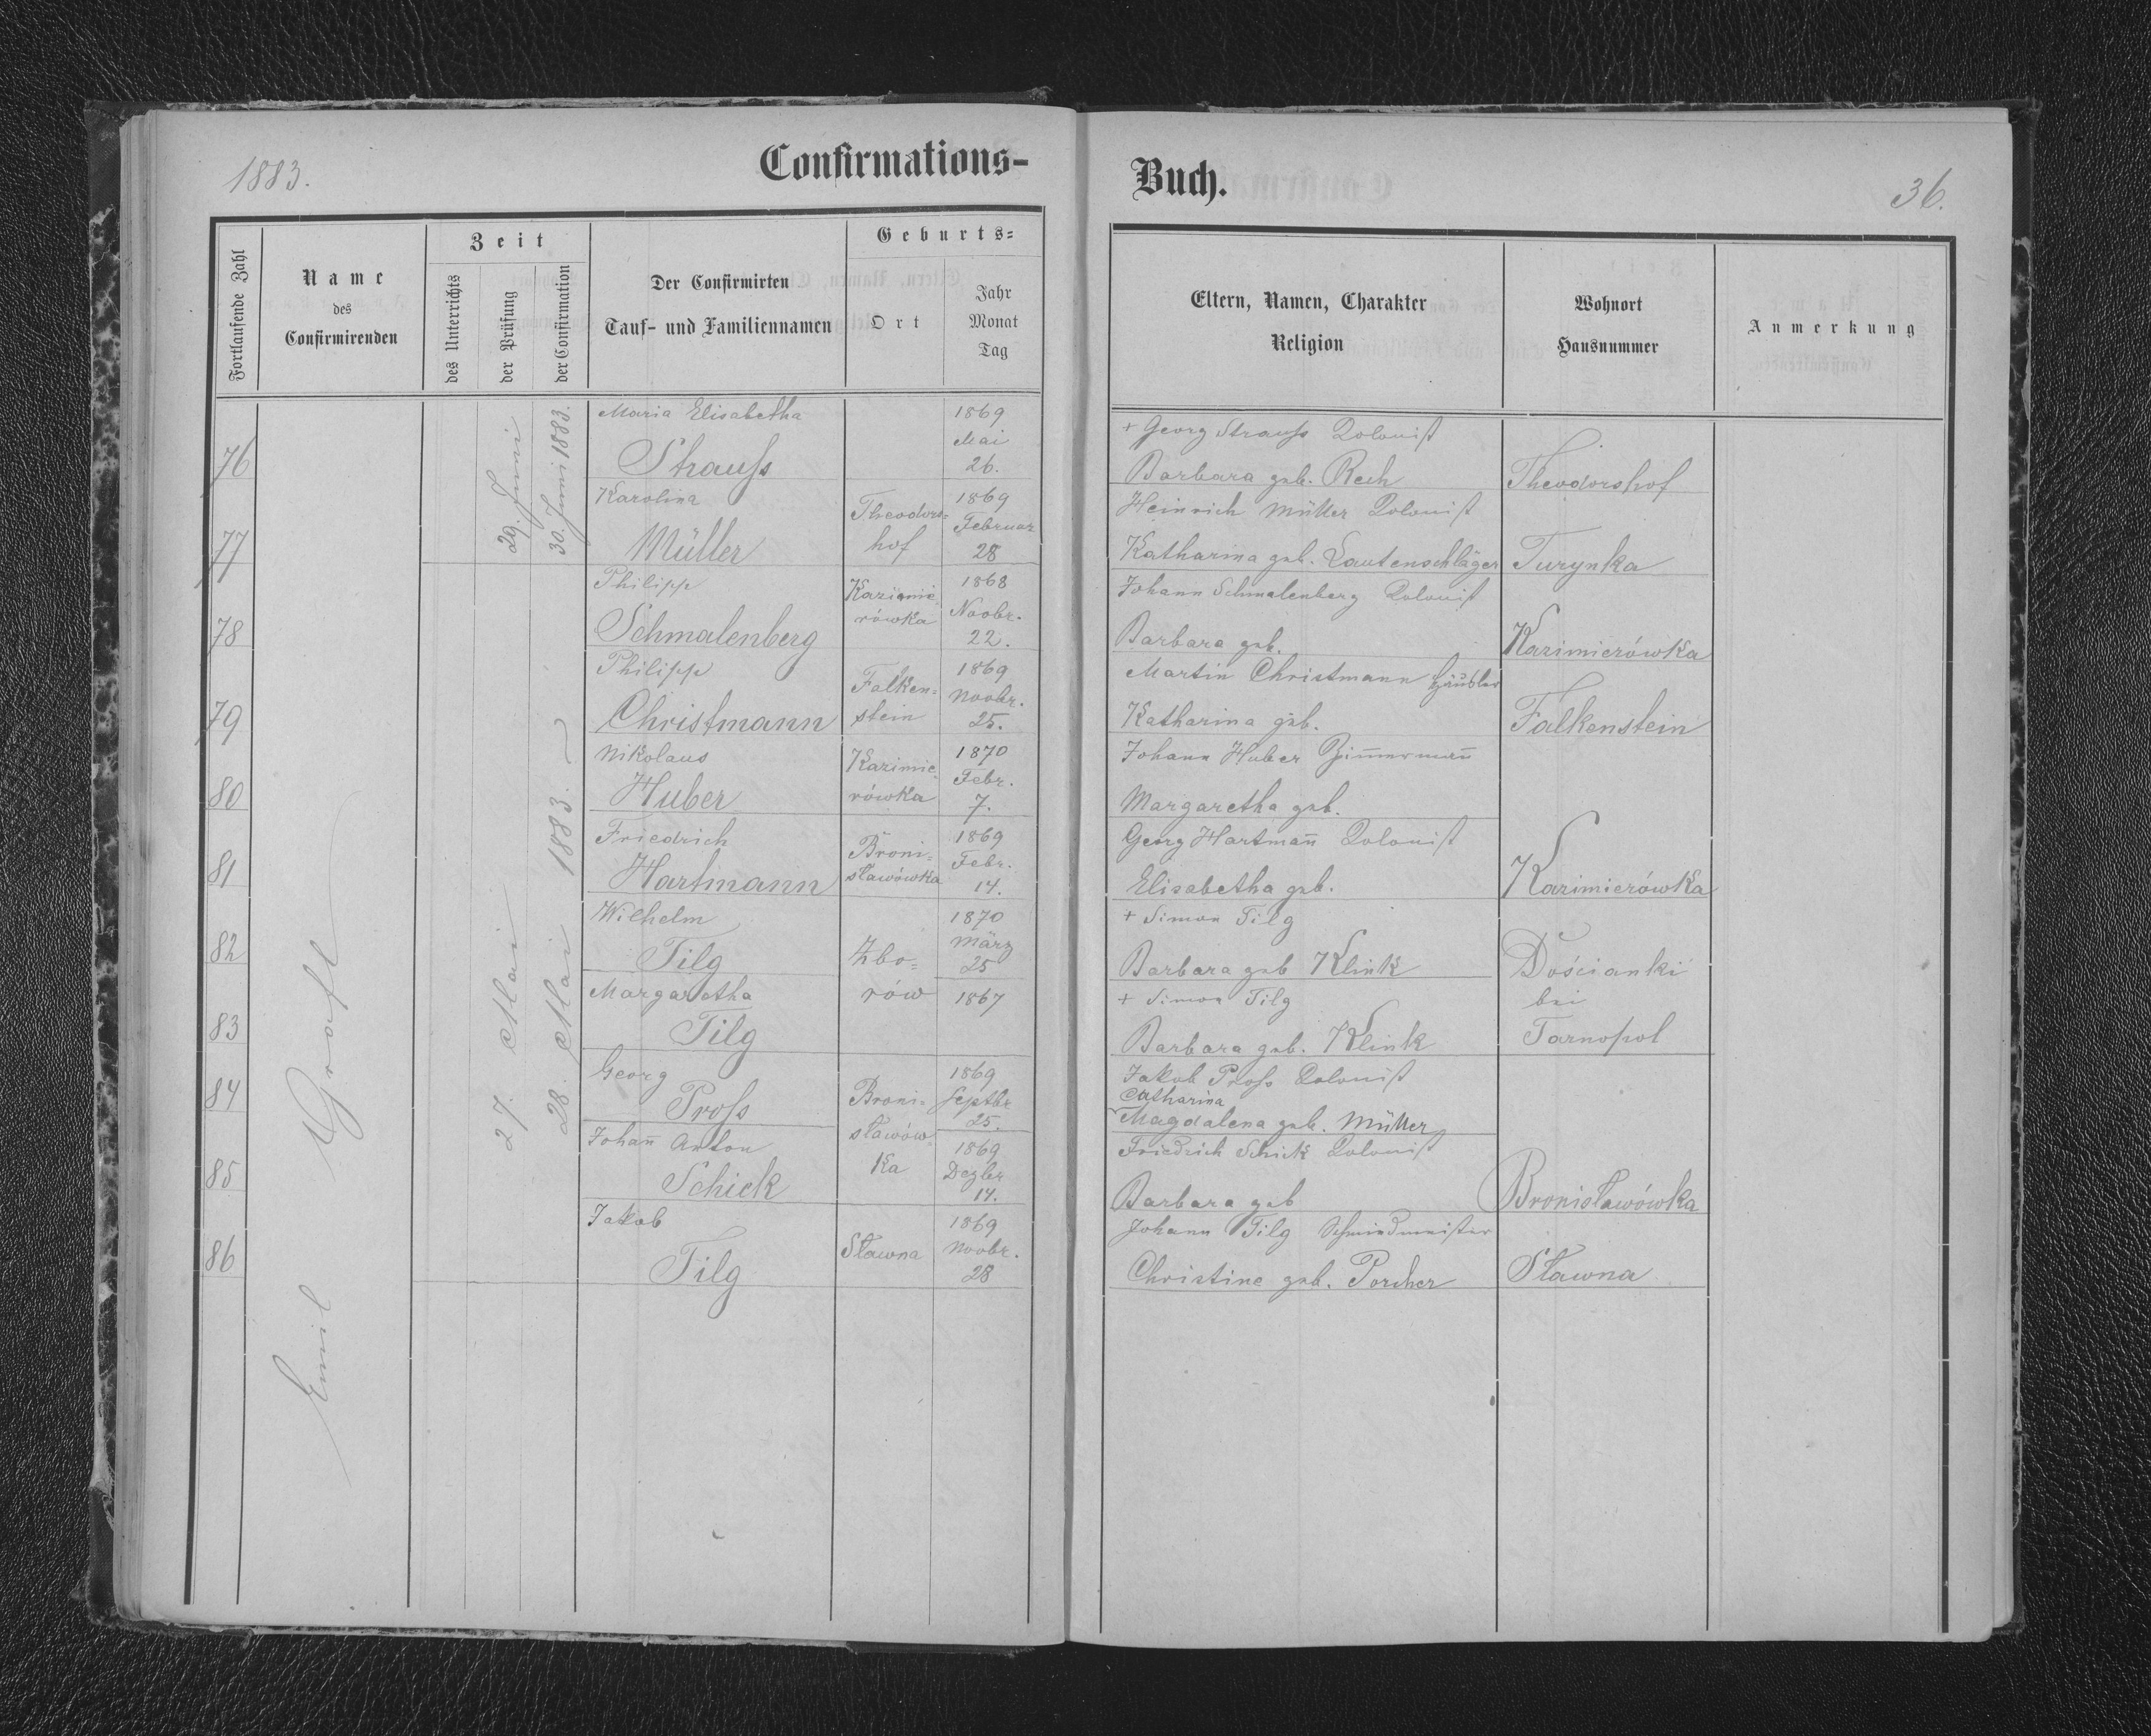 1883.
Confirmations-
Buch.
36.
Fortlaufende Zahl
Name
des
Confirmirenden
Zeit
des Unterrichts
der Prüfung
der Confirmation
Der Confirmirten
Tauf- und Familiennamen
Geburts-
Ort
Jahr
Monat
Tag
Eltern, Namen, Charakter
Religion
Wohnort
Hausnummer
Anmerkung
Emil Graft
29. Juni
30. Juni 1883.
27. Mai
28. Mai 1883.
76
Maria Elisabetha
Strauß
1869
Mai
26.
+ Georg Strauß Kolonist
Barbara geb. Rech
Theodorshof
77
Karolina
Müller
Theodors-
hof
1869
Februar
28
Heinrich Müller Kolonist
Katharina geb. Lautenschläger
Turynka
78
Philipp
Schmalenberg
Kazimie-
rówka
1868
Novbr.
22.
Johann Schmalenberg Kolonist
Barbara geb.
Kazimierówka
79
Philipp
Christmann
Falken-
stein
1869
Novbr.
25.
Martin Christmann Häusler
Katharina geb.
Falkenstein
80
Nikolaus
Huber
Kazimie-
rówka
1870
Febr.
7.
Johann Huber Zim̄erman̄
Margaretha geb.
81
Friedrich
Hartmann
Broni-
sławówka
1869
Febr.
14.
Georg Hartman̄ Kolonist
Elisabetha geb.
Kazimierówka
82
Wilhelm
Tilg
Zbo-
rów
1870
März
25
+ Simon Tilg
Barbara geb Klink
Dościanki
bei
Tarnopol
83
Margaretha
Tilg
1867
+ Simon Tilg
Barbara geb. Klink
84
Georg
Proß
Broni-
sławów-
ka
1869
Septbr
25.
Jakob Proß Kolonist
Catharina
Magdalena geb. Müller
85
Johan̄ Anton
Schick
1869
Dezbr
14.
Friedrich Schick Kolonist
Barbara geb
Bronisławówka
86
Jakob
Tilg
Sławna
1869
Novbr.
28
Johann Tilg Schmiedmeister
Christine geb. Porcher
Sławna